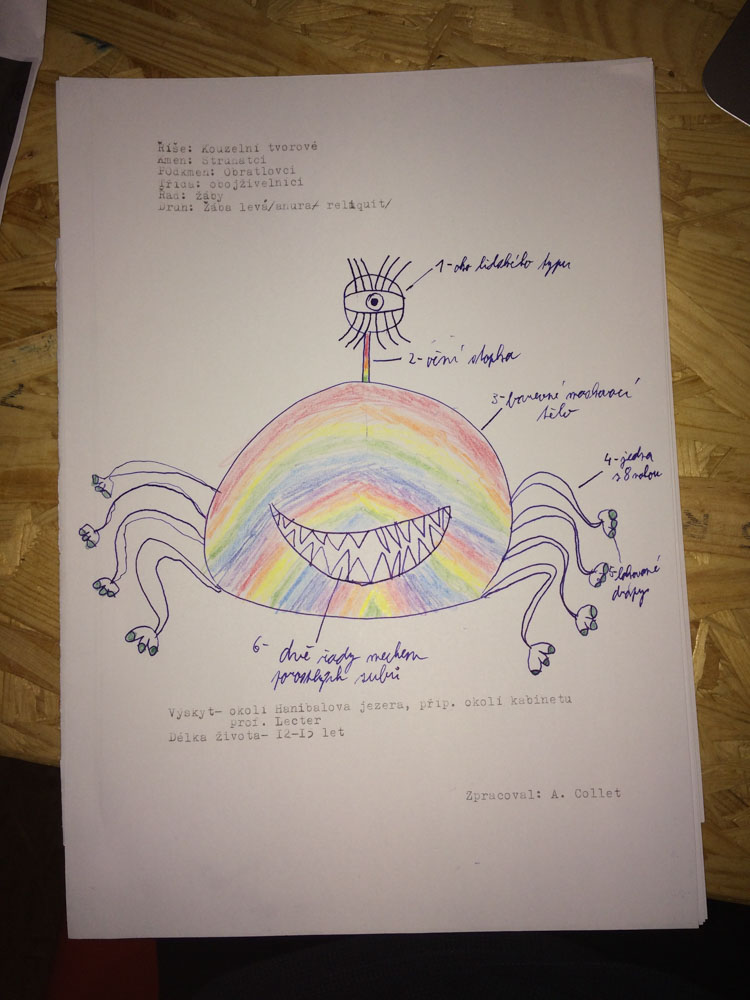 Říše: Kouzelní tvorové
Kmen: Strunatci
Podkmen: Obratlovci
Třída: obojživelníci
Řád: žáby
Druh: Žába levá/anura/ reliquit/
1-oko lidského typu
2-oční stopka
3-barevné maskovací
tělo
4-jedna
z 8 nohou
5-lakované
drápy
6- dvě řady mechem
porostlých zubů
Výskyt- okolí Hanibalova jezera, příp. okolí kabinetu
prof. Lecter
Délka života- 12-15 let
Zpracoval: A. Collet